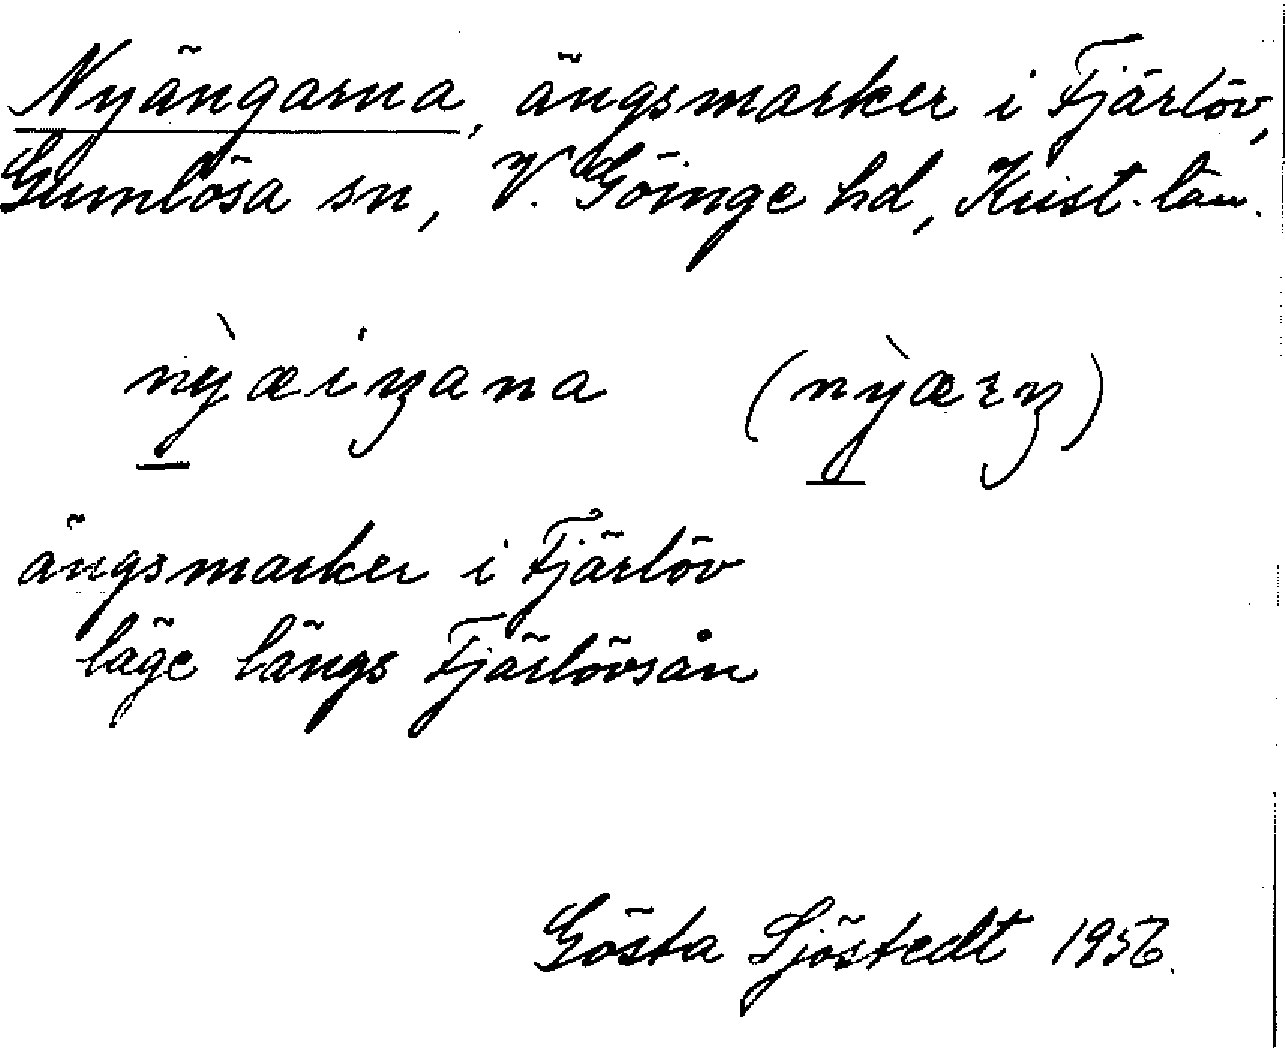 Nyängarna, ängsmarker i Fjärlöv,
Gumlösa sn, V. Göinge hd, Krist. län.
ängsmarker i Fjärlöv
läge längs Fjärlövsån
Gösta Sjöstedt 1956.